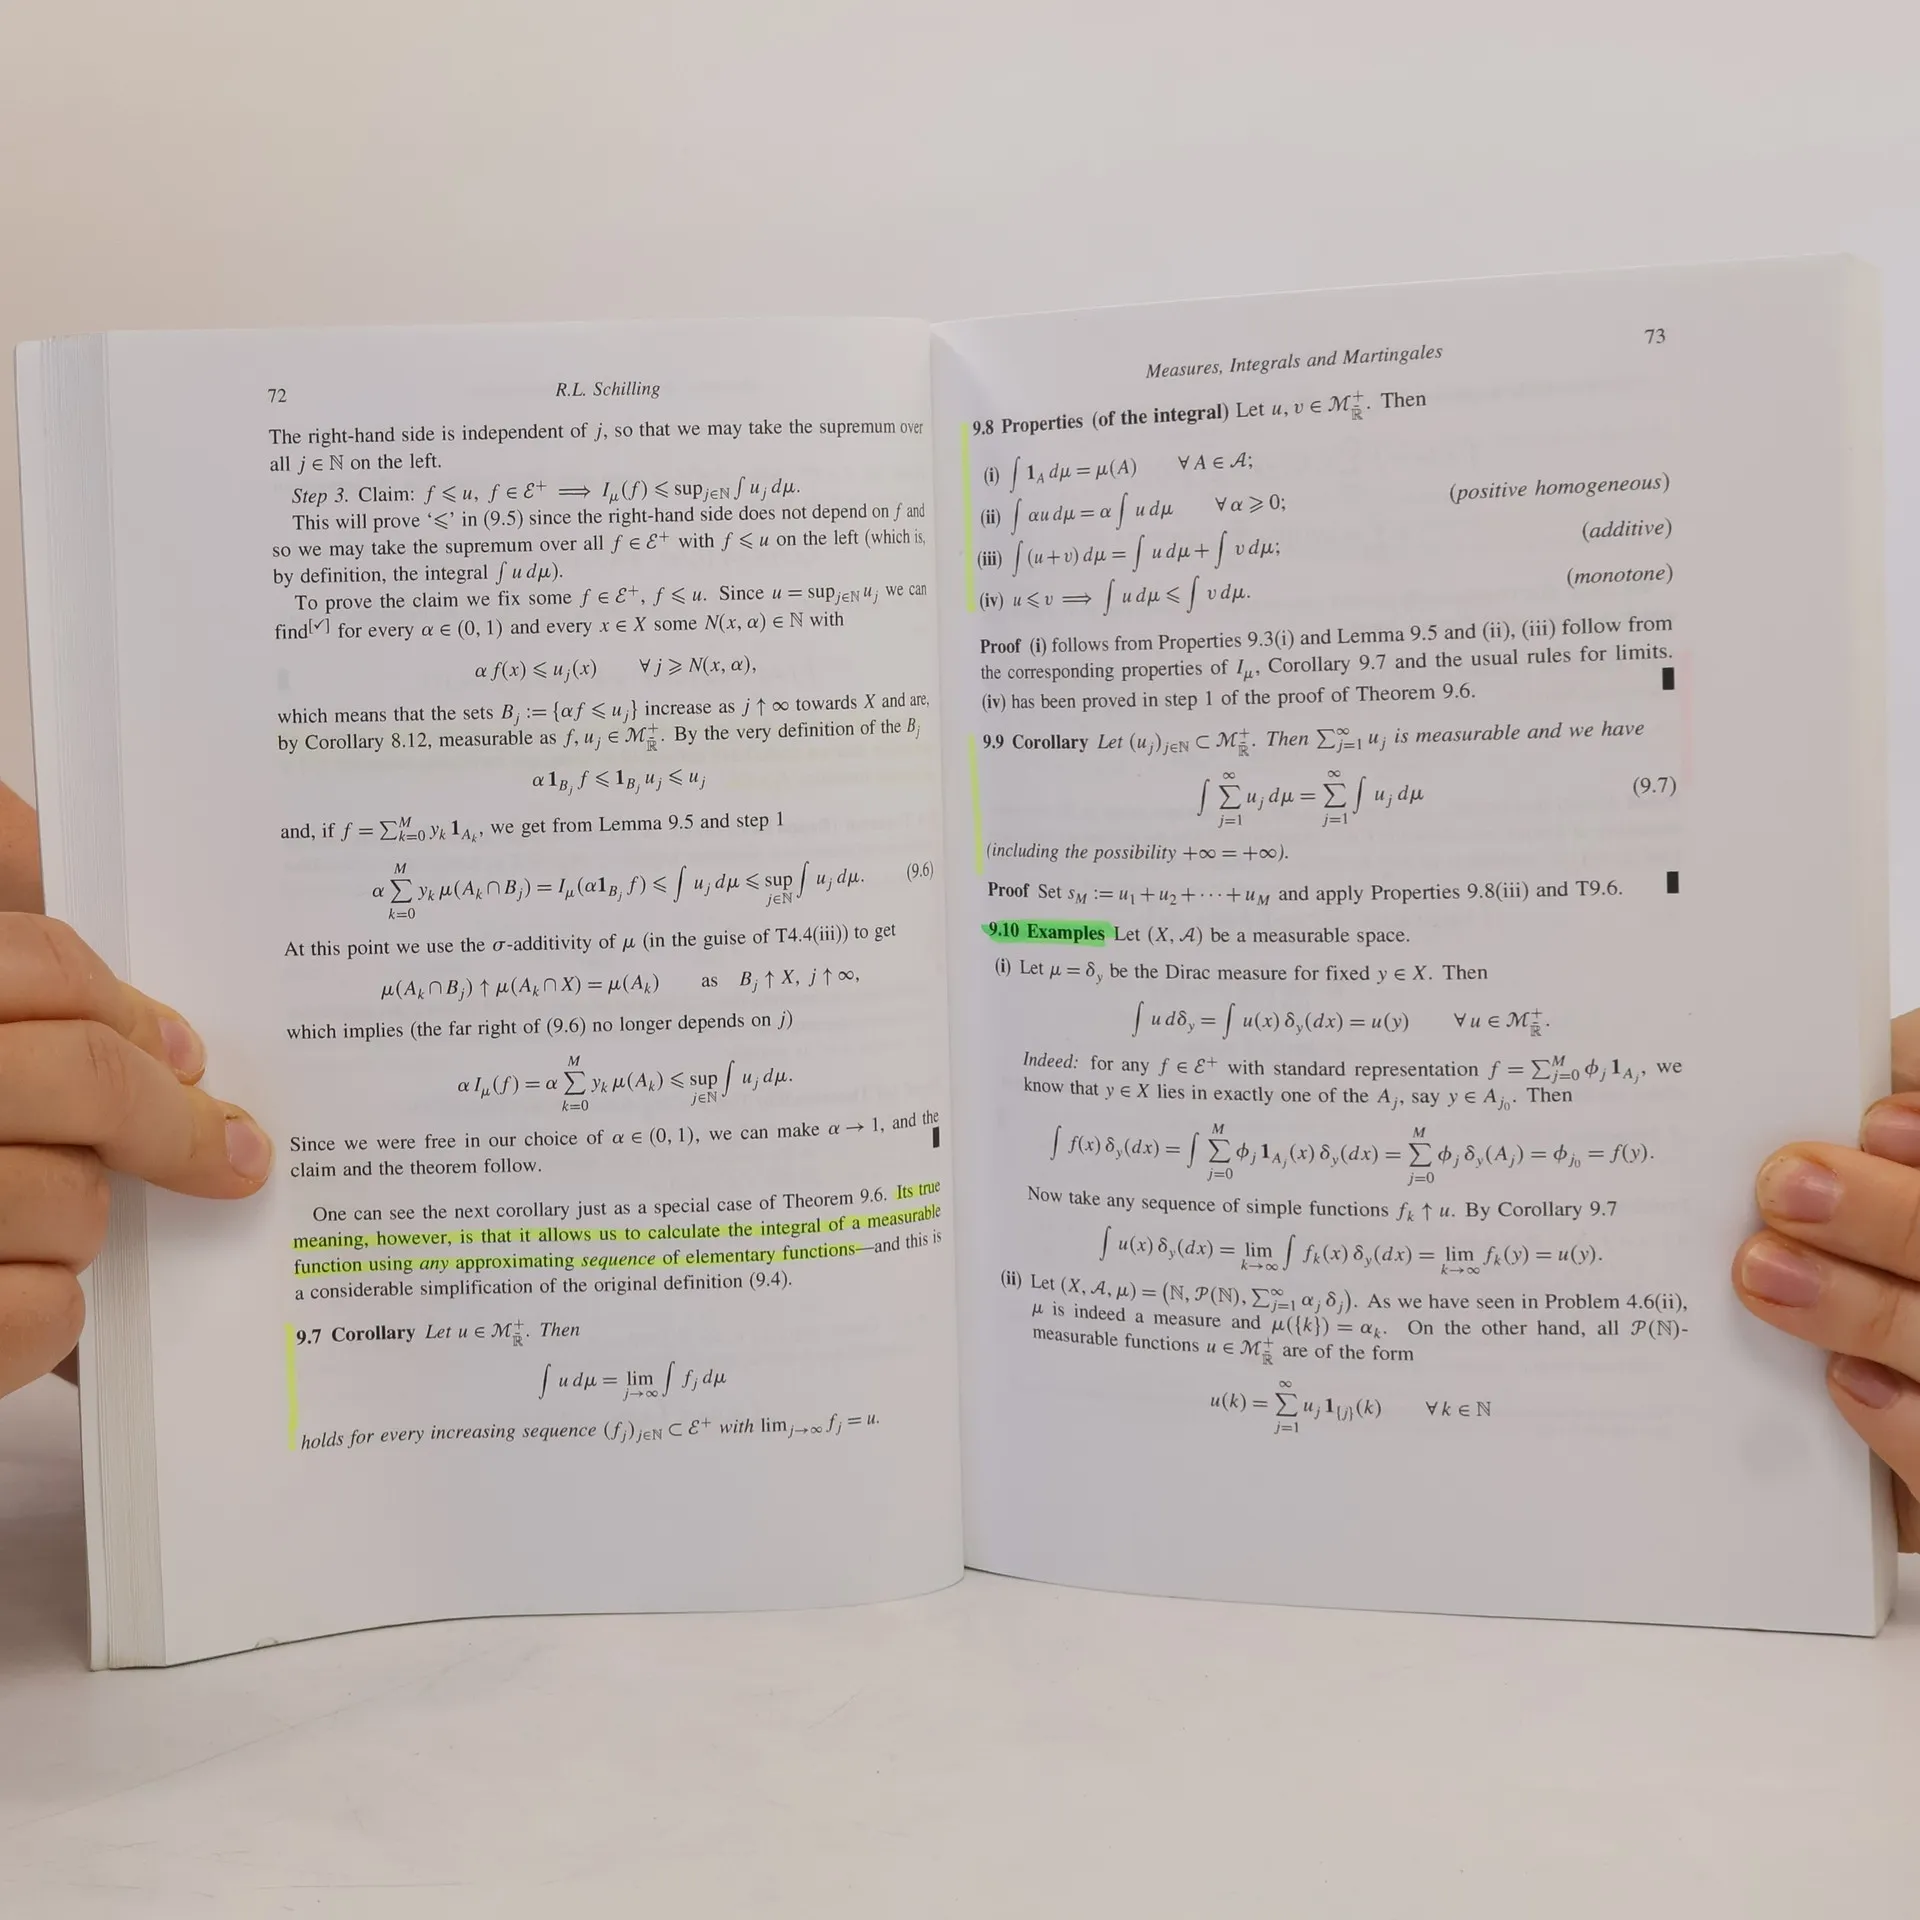 72
R.L. Schilling
The right-hand side is independent of j, so that we may take the supremum over
all j ∈ ℕ on the left.
Step 3. Claim: f ⩽ u, f ∈ ℰ⁺ ⟹ I_μ(f) ⩽ sup_{j∈ℕ} ∫ u_j dμ.
This will prove ‘⩽’ in (9.5) since the right-hand side does not depend on f and
so we may take the supremum over all f ∈ ℰ⁺ with f ⩽ u on the left (which is,
by definition, the integral ∫ u dμ).
To prove the claim we fix some f ∈ ℰ⁺, f ⩽ u. Since u = sup_{j∈ℕ} u_j we can
find[✓] for every α ∈ (0, 1) and every x ∈ X some N(x, α) ∈ ℕ with
α f(x) ⩽ u_j(x) ∀ j ⩾ N(x, α),
which means that the sets B_j := {αf ⩽ u_j} increase as j ↑ ∞ towards X and are,
by Corollary 8.12, measurable as f, u_j ∈ ℳ⁺_ℝ̄. By the very definition of the B_j
α1_{B_j} f ⩽ 1_{B_j} u_j ⩽ u_j
and, if f = ∑_{k=0}^M y_k 1_{A_k}, we get from Lemma 9.5 and step 1
α ∑_{k=0}^M y_k μ(A_k ∩ B_j) = I_μ(α1_{B_j} f) ⩽ ∫ u_j dμ ⩽ sup_{j∈ℕ} ∫ u_j dμ. (9.6)
At this point we use the σ-additivity of μ (in the guise of T4.4(iii)) to get
μ(A_k ∩ B_j) ↑ μ(A_k ∩ X) = μ(A_k) as B_j ↑ X, j ↑ ∞,
which implies (the far right of (9.6) no longer depends on j)
α I_μ(f) = α ∑_{k=0}^M y_k μ(A_k) ⩽ sup_{j∈ℕ} ∫ u_j dμ.
Since we were free in our choice of α ∈ (0, 1), we can make α → 1, and the
claim and the theorem follow.
One can see the next corollary just as a special case of Theorem 9.6. Its true
meaning, however, is that it allows us to calculate the integral of a measurable
function using any approximating sequence of elementary functions—and this is
a considerable simplification of the original definition (9.4).
9.7 Corollary Let u ∈ ℳ⁺_ℝ̄. Then
∫ u dμ = lim_{j→∞} ∫ f_j dμ
holds for every increasing sequence (f_j)_{j∈ℕ} ⊂ ℰ⁺ with lim_{j→∞} f_j = u.
Measures, Integrals and Martingales
73
9.8 Properties (of the integral) Let u, v ∈ ℳ⁺_ℝ̄. Then
(i) ∫ 1_A dμ = μ(A) ∀ A ∈ 𝒜;
(ii) ∫ αu dμ = α ∫ u dμ ∀ α ⩾ 0; (positive homogeneous)
(iii) ∫ (u + v) dμ = ∫ u dμ + ∫ v dμ; (additive)
(iv) u ⩽ v ⟹ ∫ u dμ ⩽ ∫ v dμ. (monotone)
Proof (i) follows from Properties 9.3(i) and Lemma 9.5 and (ii), (iii) follow from
the corresponding properties of I_μ, Corollary 9.7 and the usual rules for limits.
(iv) has been proved in step 1 of the proof of Theorem 9.6.
9.9 Corollary Let (u_j)_{j∈ℕ} ⊂ ℳ⁺_ℝ̄. Then ∑_{j=1}^∞ u_j is measurable and we have
∫ ∑_{j=1}^∞ u_j dμ = ∑_{j=1}^∞ ∫ u_j dμ (9.7)
(including the possibility +∞ = +∞).
Proof Set s_M := u_1 + u_2 + ··· + u_M and apply Properties 9.8(iii) and T9.6.
9.10 Examples Let (X, 𝒜) be a measurable space.
(i) Let μ = δ_y be the Dirac measure for fixed y ∈ X. Then
∫ u dδ_y = ∫ u(x) δ_y(dx) = u(y) ∀ u ∈ ℳ⁺_ℝ̄.
Indeed: for any f ∈ ℰ⁺ with standard representation f = ∑_{j=0}^M ϕ_j 1_{A_j}, we
know that y ∈ X lies in exactly one of the A_j, say y ∈ A_{j_0}. Then
∫ f(x) δ_y(dx) = ∫ ∑_{j=0}^M ϕ_j 1_{A_j}(x) δ_y(dx) = ∑_{j=0}^M ϕ_j δ_y(A_j) = ϕ_{j_0} = f(y).
Now take any sequence of simple functions f_k ↑ u. By Corollary 9.7
∫ u(x) δ_y(dx) = lim_{k→∞} ∫ f_k(x) δ_y(dx) = lim_{k→∞} f_k(y) = u(y).
(ii) Let (X, 𝒜, μ) = (ℕ, 𝒫(ℕ), ∑_{j=1}^∞ α_j δ_j). As we have seen in Problem 4.6(ii),
μ is indeed a measure and μ({k}) = α_k. On the other hand, all 𝒫(ℕ)-
measurable functions u ∈ ℳ⁺_ℝ̄ are of the form
u(k) = ∑_{j=1}^∞ u_j 1_{{j}}(k) ∀ k ∈ ℕ